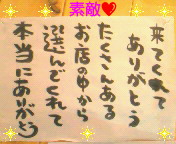 素敵❤
来てくれて
ありがとう
たくさんある
お店の中から
選んでくれて
本当にありがとう